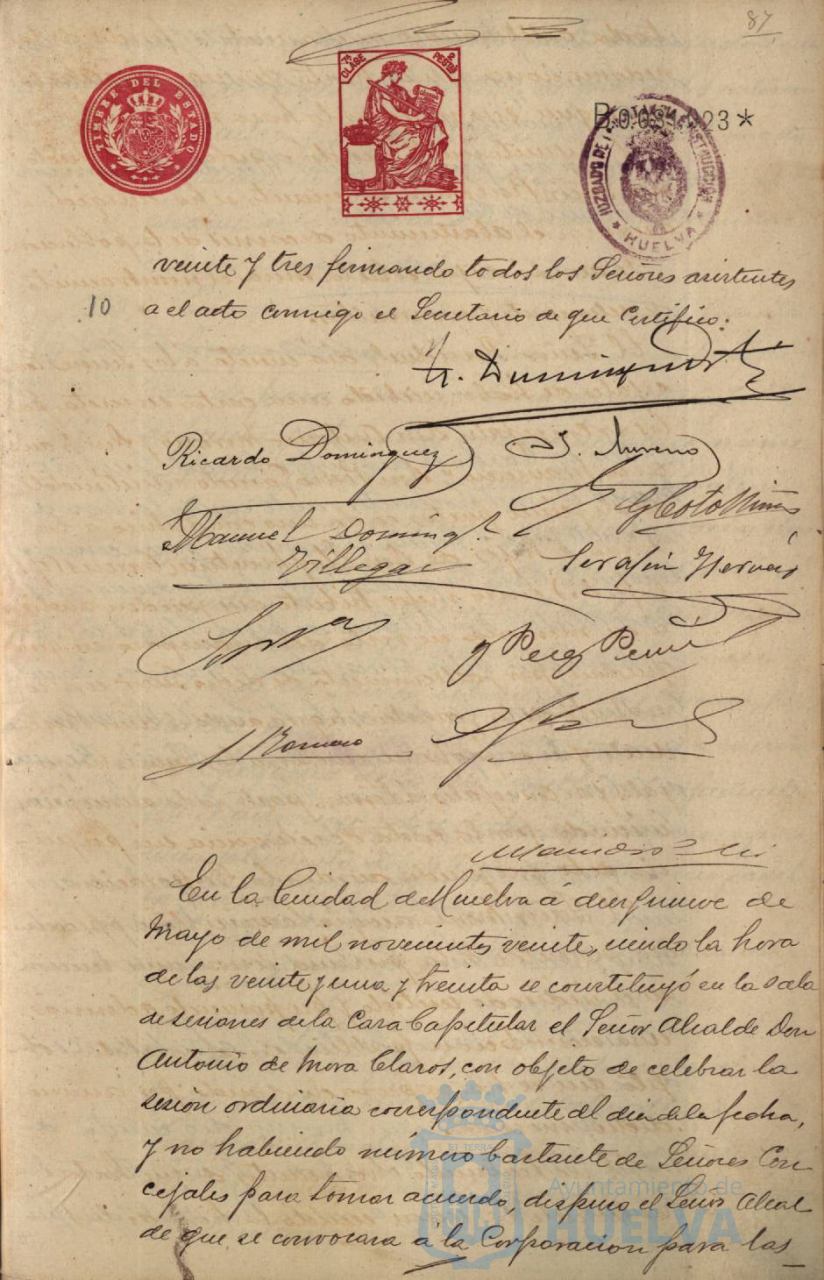 87
TIMBRE DEL ESTADO
7ª CLASE 2 PESETAS
B.0.081.023*
JUZGADO DE 1ª INSTANCIA E INSTRUCCIÓN
* HUELVA *
veinte y tres firmando todos los Señores asistentes
10
a el acto conmigo el Secretario de que Certifico:
Ricardo Dominguez J. Moreno
Manuel Doming.
Villegas
G Coto
Serafin Hervás
Perez
Romero
En la Ciudad de Huelva á diez y nueve de
Mayo de mil novecientos veinte, siendo la hora
de las veinte y una y treinta se constituyó en la sala
de sesiones de la Casa Capitular el Señor Alcalde Don
Antonio de Mora Claros, con objeto de celebrar la
sesión ordinaria correspondiente al dia de la fecha,
y no habiendo número bastante de Señores Con
cejales para tomar acuerdo, dispuso el Señor Alcal
de que se convocara á la Corporación para las
Ayuntamiento de
HUELVA